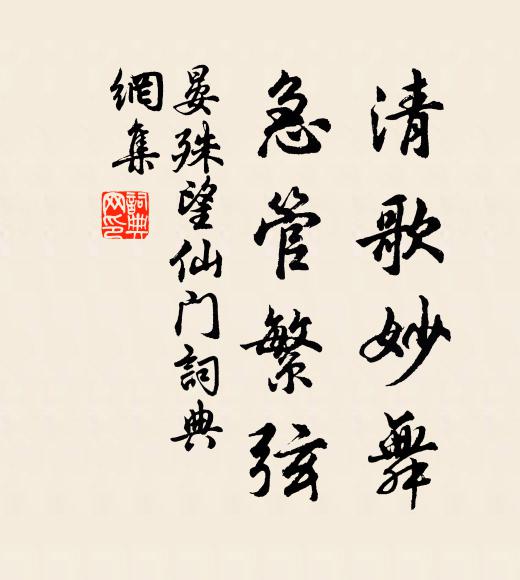 清歌妙舞
急管繁弦
晏殊望仙门詞典
網集
詞典
网印